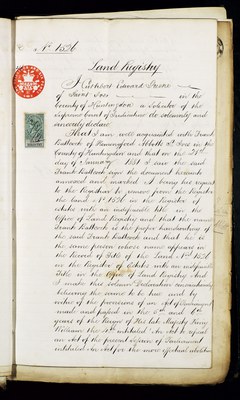 No. 1526
Land Registry
I Cuthbert Edward
of Saint Ives in the
County of Huntingdon a Solicitor of the
Supreme Court of Judicature do solemnly and
sincerely declare
That I am well acquainted with Frank
of Hemingford Abbotts St. Ives in the
County of Huntingdon and that on the 28th
day of January 1881 I saw the said
Frank sign the document hereunto
annexed and marked A being his request
to the Registrar to remove from the Register
the Land No. 1526 in the Register of
estates with an indefeasible title in the
Office of Land Registry and that the name
Frank is the proper handwriting of
the said Frank and that he is
the same person whose name appears in
the Record of Title of the Land No. 1526
in the Register of Estates with an indefeasible
Title in the Office of Land Registry And
I make this solemn Declaration conscientiously
believing the same to be true and by
virtue of the provisions of an Act of Parliament
made and passed in the 5th and 6th
years of the Reign of His late Majesty King
William the 4th intituled An Act to repeal
an Act of the present Session of Parliament
intituled An Act for the more effectual abolition